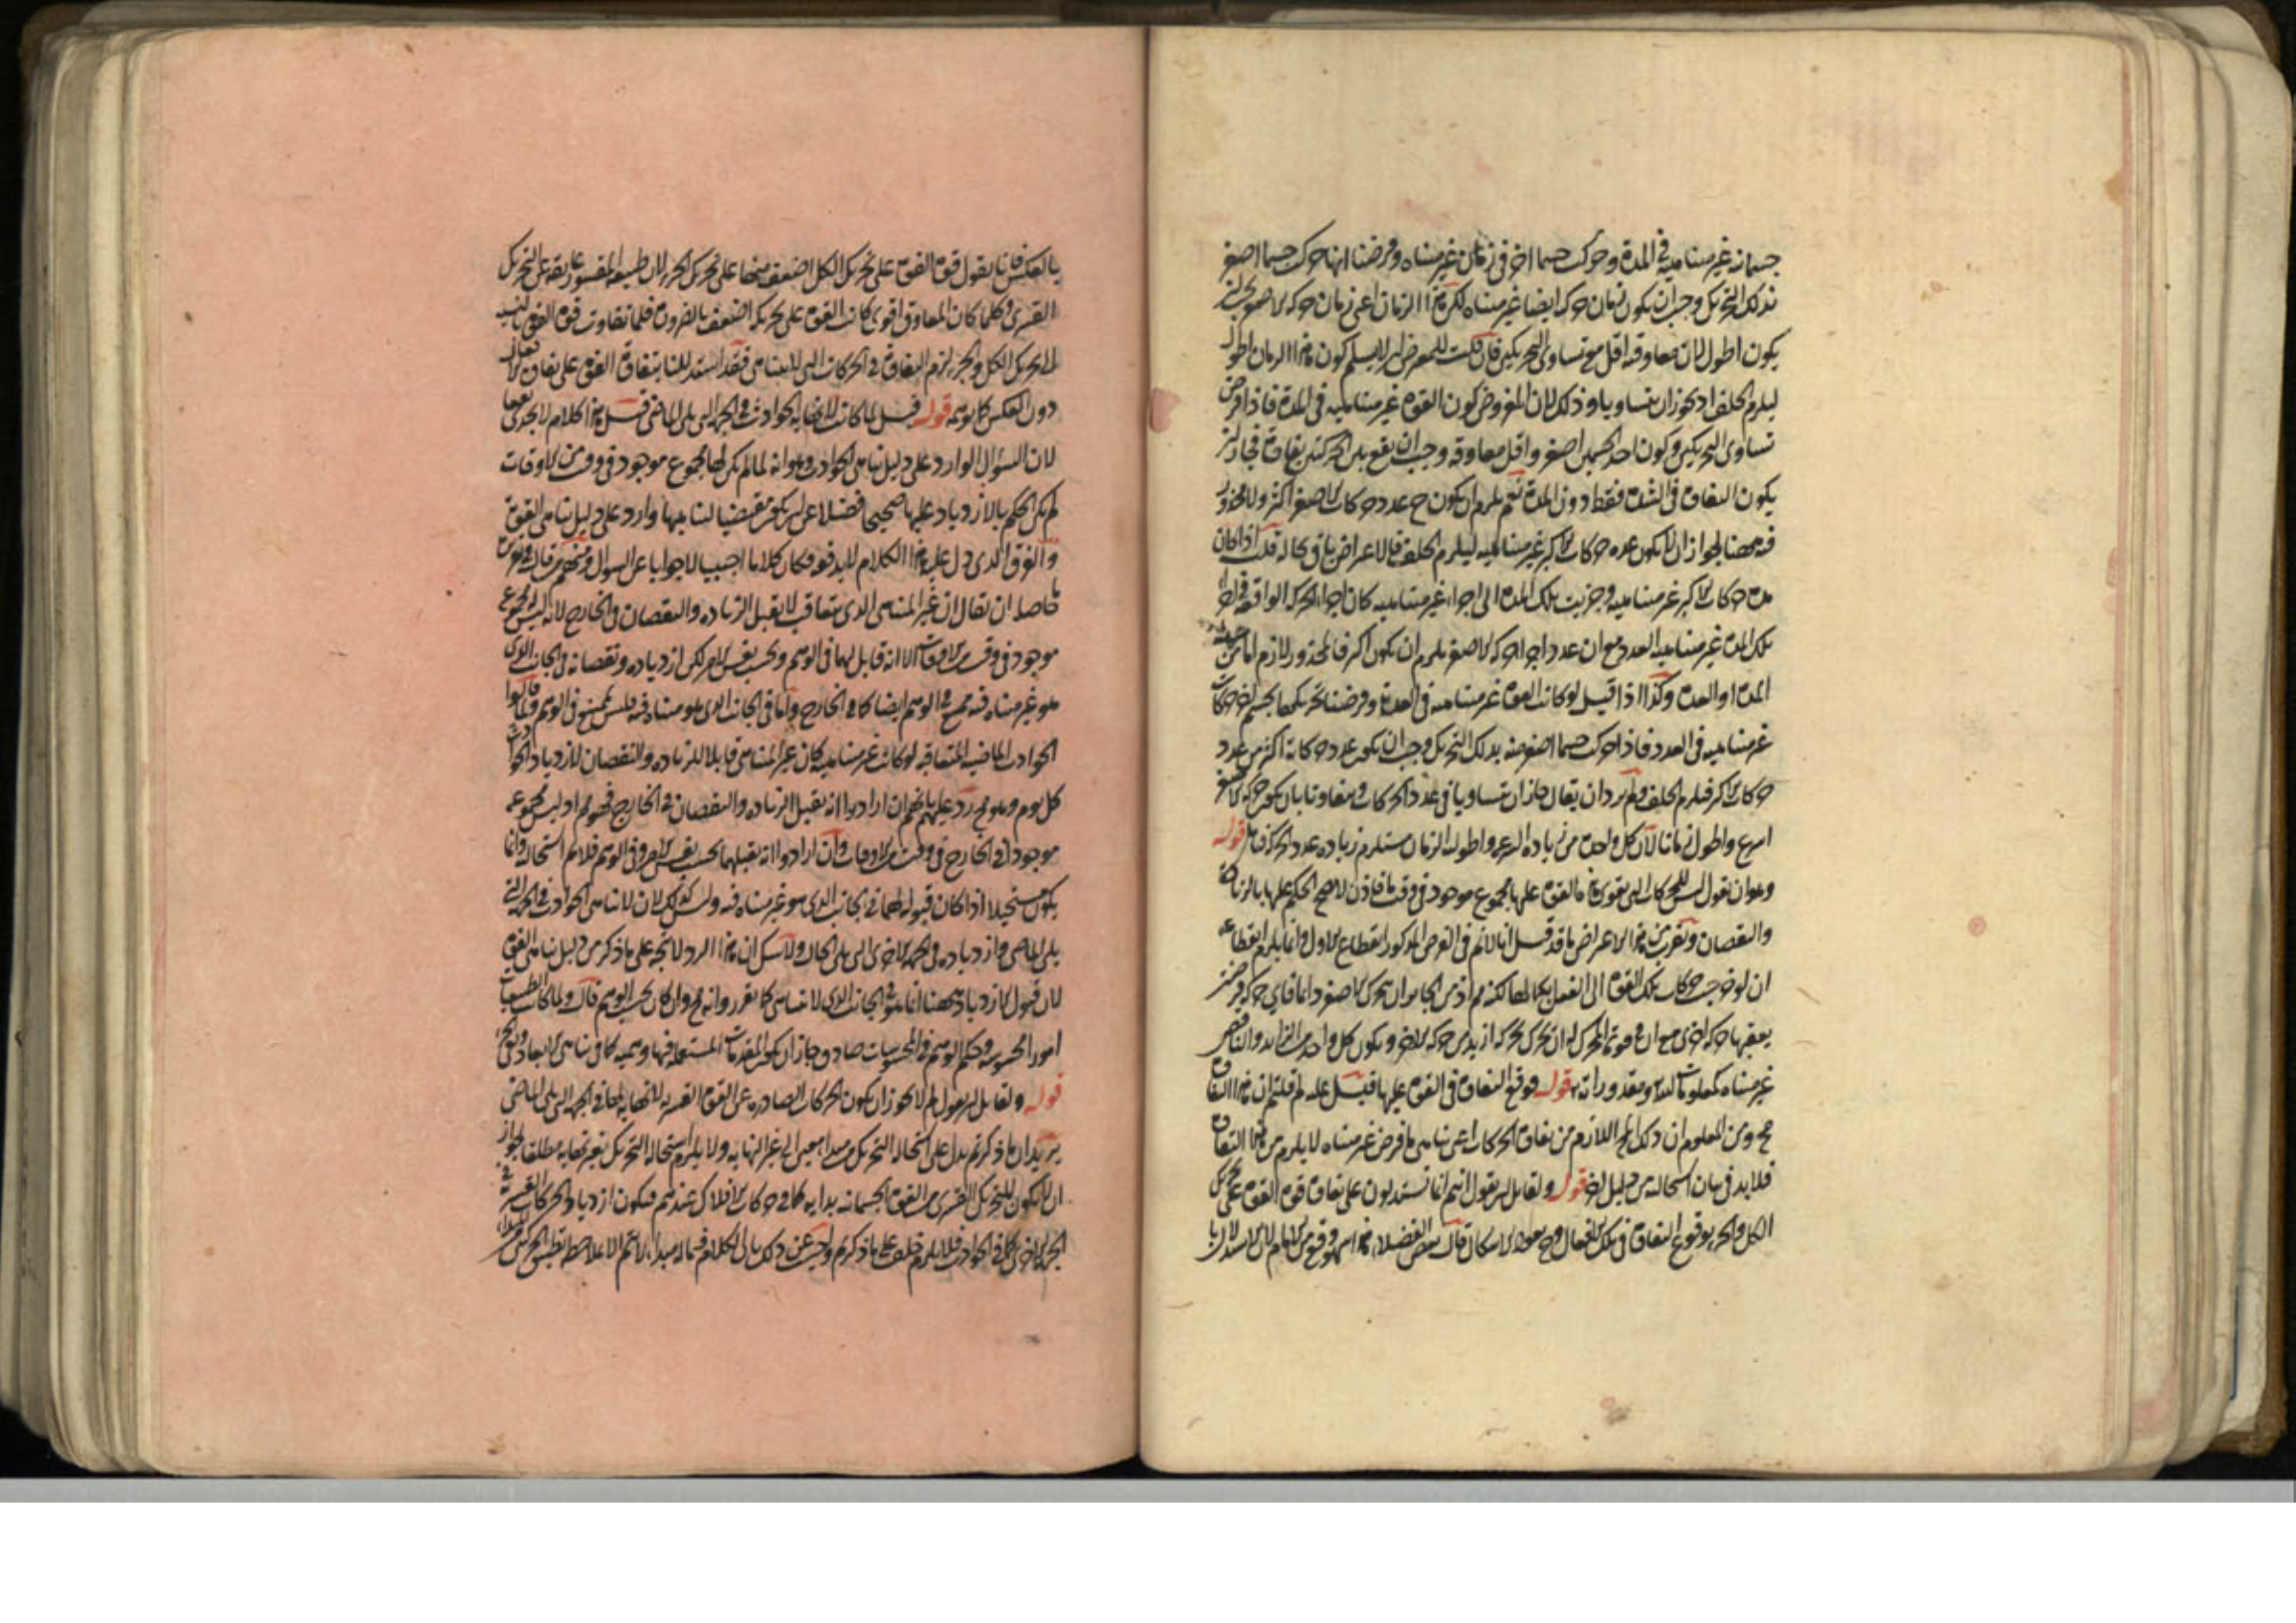 جسمانه غير متناهيه فى المدة وحركت جسما اخر فى زمان غير متناه وفرضنا انها حركت جسما اصغر
بذلك التحريك وجب ان يكون زمان حركه ايضا غير متناه لكن هذا الزمان اعنى زمان حركه الاصغر يجب ان
يكون اطول لان معاوقه اقل مع تساوى التحريكين فان قلت للمعترض ان لا يسلم كون هذا الزمان اطول
ليلزم الخلف اذ يجوز ان يتساويا وذلك لان المفروض كون القوه غير متناهيه فى المدة فاذا فرض
تساوى التحريكين وكون احد الجسمين اصغر واقل معاوقه وجب ان يقع بين الحركتين تفاوت فجاز ان
يكون التفاوت فى الشده فقط دون المدة نعم يلزم ان يكون ح عدد حركات الاصغر اكثر ولا محذور
فيه ههنا لجواز ان لا يكون عده حركات الاكبر غير متناهيه ليلزم الخلف فالاعراض باق بحاله قلت اذا كان
مده حركات الاكبر غير متناهيه وجزيت تلك المدة الى اجزاء غير متناهيه كان اجزاء الحركه الواقعه فى اجزاء
تلك المدة غير متناهيه العدد مع ان عدد اجزاء حركه الاصغر يلزم ان يكون اكثر فالمحذور لازم اما من
المدة او العدة وكذا اذا قيل لو كانت القوه غير متناهيه فى العدة وفرضنا تحريكها لجسم اخر حركات
غير متناهيه فى العدد فاذا حركت جسما اصغر منه بذلك التحريك وجب ان يكون عدد حركاته اكثر من عدد
حركات الاكبر فيلزم الخلف ولم يرد ان يقال جاز ان يتساويا فى عدد الحركات ويتفاوتا بان يكون حركه الاصغر
اسرع واطول زمانا لان كل واحد من زياده السرعه واطوليه الزمان مستلزم زياده عدد الحركه فتامل قوله
وهو ان نقول ليس للحركات التى تقوى هذه القوه عليها مجموع موجود فى وقت ما فاذن لا يصح الحكم عليها بالزياده
والنقصان وتقرير هذا الاعراض ما قد قيل انا لا نم فى الفرض المذكور انقطاع الاول وانما يلزم انقطاعه
ان لو خرجت حركات تلك القوه الى الفعل بكمالها لكنه مم اذ من الجائز ان يتحرك الاصغر دائما فاى حركه فرضت
يعقبها حركه اخرى مع ان فى قوه المحرك ان يحرك حركه ازيد من حركه الاخر ويكون كل واحد من الزائد والناقص
غير متناه كمعلومات الله ومقدوراته قوله فوقع التفاوت فى القوه عليها قيل عليه لم قلتم ان هذا التفاوت
مح ومن المعلوم ان ذلك المح اللازم من تفاوت الحركات اعنى تناهى ما فرض غير متناه لا يلزم من هذا التفاوت
فلا بد فى بيان استحالته من دليل اخر قوله ولقائل ان يقول انهم انما يستدلون على تفاوت قوه القوه على تحريك
الكل والجزء بوقوع التفاوت فى تلك الافعال وح يعود الاشكال قال بعض الفضلاء هذا سهو وقع من الامام لان الاستدلال
بالعكس فانا نقول قوه القوه على تحريك الكل اضعف منها على تحريك الجزء لان طبيعه المقسور عائقه عن التحريك
القسرى وكلما كان المعاوق اقوى كانت القوه على تحريكه اضعف بالضروره فلما تفاوت قوه القوه بالنسبه
الى تحريك الكل والجزء لزم التفاوت فى الحركات التى لا تتناهى فقد استدللنا بتفاوت القوه على تفاوت الافعال
دون العكس كما توهمه قوله قيل لما كانت لانهايه الحوادث فى الجهه التى يلى الماضى قيل هذا كلام لا يجدى نفعا
لان السؤال الوارد على دليل تناهى الحوادث وهو انه لما لم يكن لها مجموع موجود فى وقت من الاوقات
لم يكن الحكم بالازدياد عليها صحيحا فضلا عن ان يكون مقتضيا لتناهيها وارد على دليل تناهى القوه
والفرق الذى دل عليه هذا الكلام لا يدفعه فكان كلاما اجنبيا لا جوابا عن السؤال ومنهم من قال فى توجيهه
حاصله ان يقال ان غير المتناهى الذى يتعاقب لا يقبل الزياده والنقصان فى الخارج لانه ليس له مجموع
موجود فى وقت من الاوقات الا انه قابل لهما فى الوهم وبحسب نفس الامر لكن ازدياده ونقصانه فى الجانب الذى
هو غير متناه فيه ممتنع فى الوهم ايضا كما فى الخارج واما فى الجانب الذى هو متناه فيه فليس بممتنع فى الوهم فلما قالوا
الحوادث الماضيه المتعاقبه لو كانت غير متناهيه كان غير المتناهى قابلا للزياده والنقصان لازدياد الحوادث
كل يوم وهو مح رد عليهم بانهم ان ارادوا انه يقبل الزياده والنقصان فى الخارج فهو مم اذ ليس مجموعه
موجودا فى الخارج فى وقت من الاوقات وان ارادوا انه يقبلهما بحسب نفس الامر وفى الوهم فلا نم استحالته وانما
يكون مستحيلا اذا كان قبوله لهما فى الجانب الذى هو غير متناه فيه وليس كذلك لان لا تناهى الحوادث فى الجهه التى
يلى الماضى وازدياده فى الجهه الاخرى التى يلى الحال ولا شك ان هذا الرد لا يتجه على ما ذكر من دليل تناهى القوه
لان قبول الازدياد ههنا انما هو فى الجانب الذى لا تناهى كما تقرر وانه مح وان كان بحسب الوهم قال ولما كانت الطبيعيات
امورا محسوسه وحكم الوهم فى المحسوسات صادق جاز ان يكون المقدمات المستعمله فيها وهميه كما فى تناهى الابعاد
قوله ولقائل ان يقول لم لا يجوز ان يكون الحركات الصادره عن القوه القسريه لانهايه لها فى الجهه التى يلى الماضى
يريد ان ما ذكرتم يدل على استحاله التحريك من مبدأ معين الى غير النهايه ولا يلزم استحاله التحريك بغير نهايه مطلقا لجواز
ان لا يكون للتحريك القسرى من القوه الجسمانيه بدايه كما فى حركات الافلاك عندهم فيكون ازدياد الحركات القسريه فى
الجهه الاخرى كما فى الحوادث فلا يلزم خلف على ما ذكرتم واجيب عن ذلك بان الكلام فيما له مبدأ